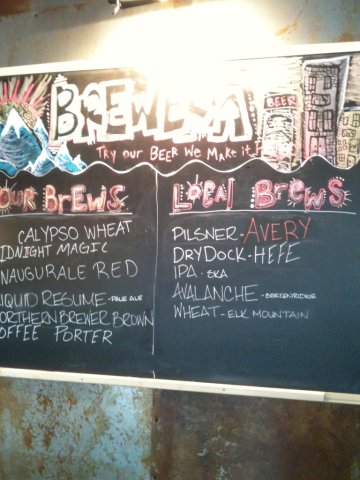 BREWERY
BEER
TRY OUR BEER WE MAKE IT!
OUR BREWS
CALYPSO WHEAT
IDNIGHT MAGIC
NAUGURALE RED
LIQUID RESUME - PALE ALE
NORTHERN BREWER BROWN
OFFEE PORTER
LOCAL BREWS
PILSNER - AVERY
DRYDOCK - HEFE
IPA - SKA
AVALANCHE - BERCENRIDGE
WHEAT - ELK MOUNTAIN